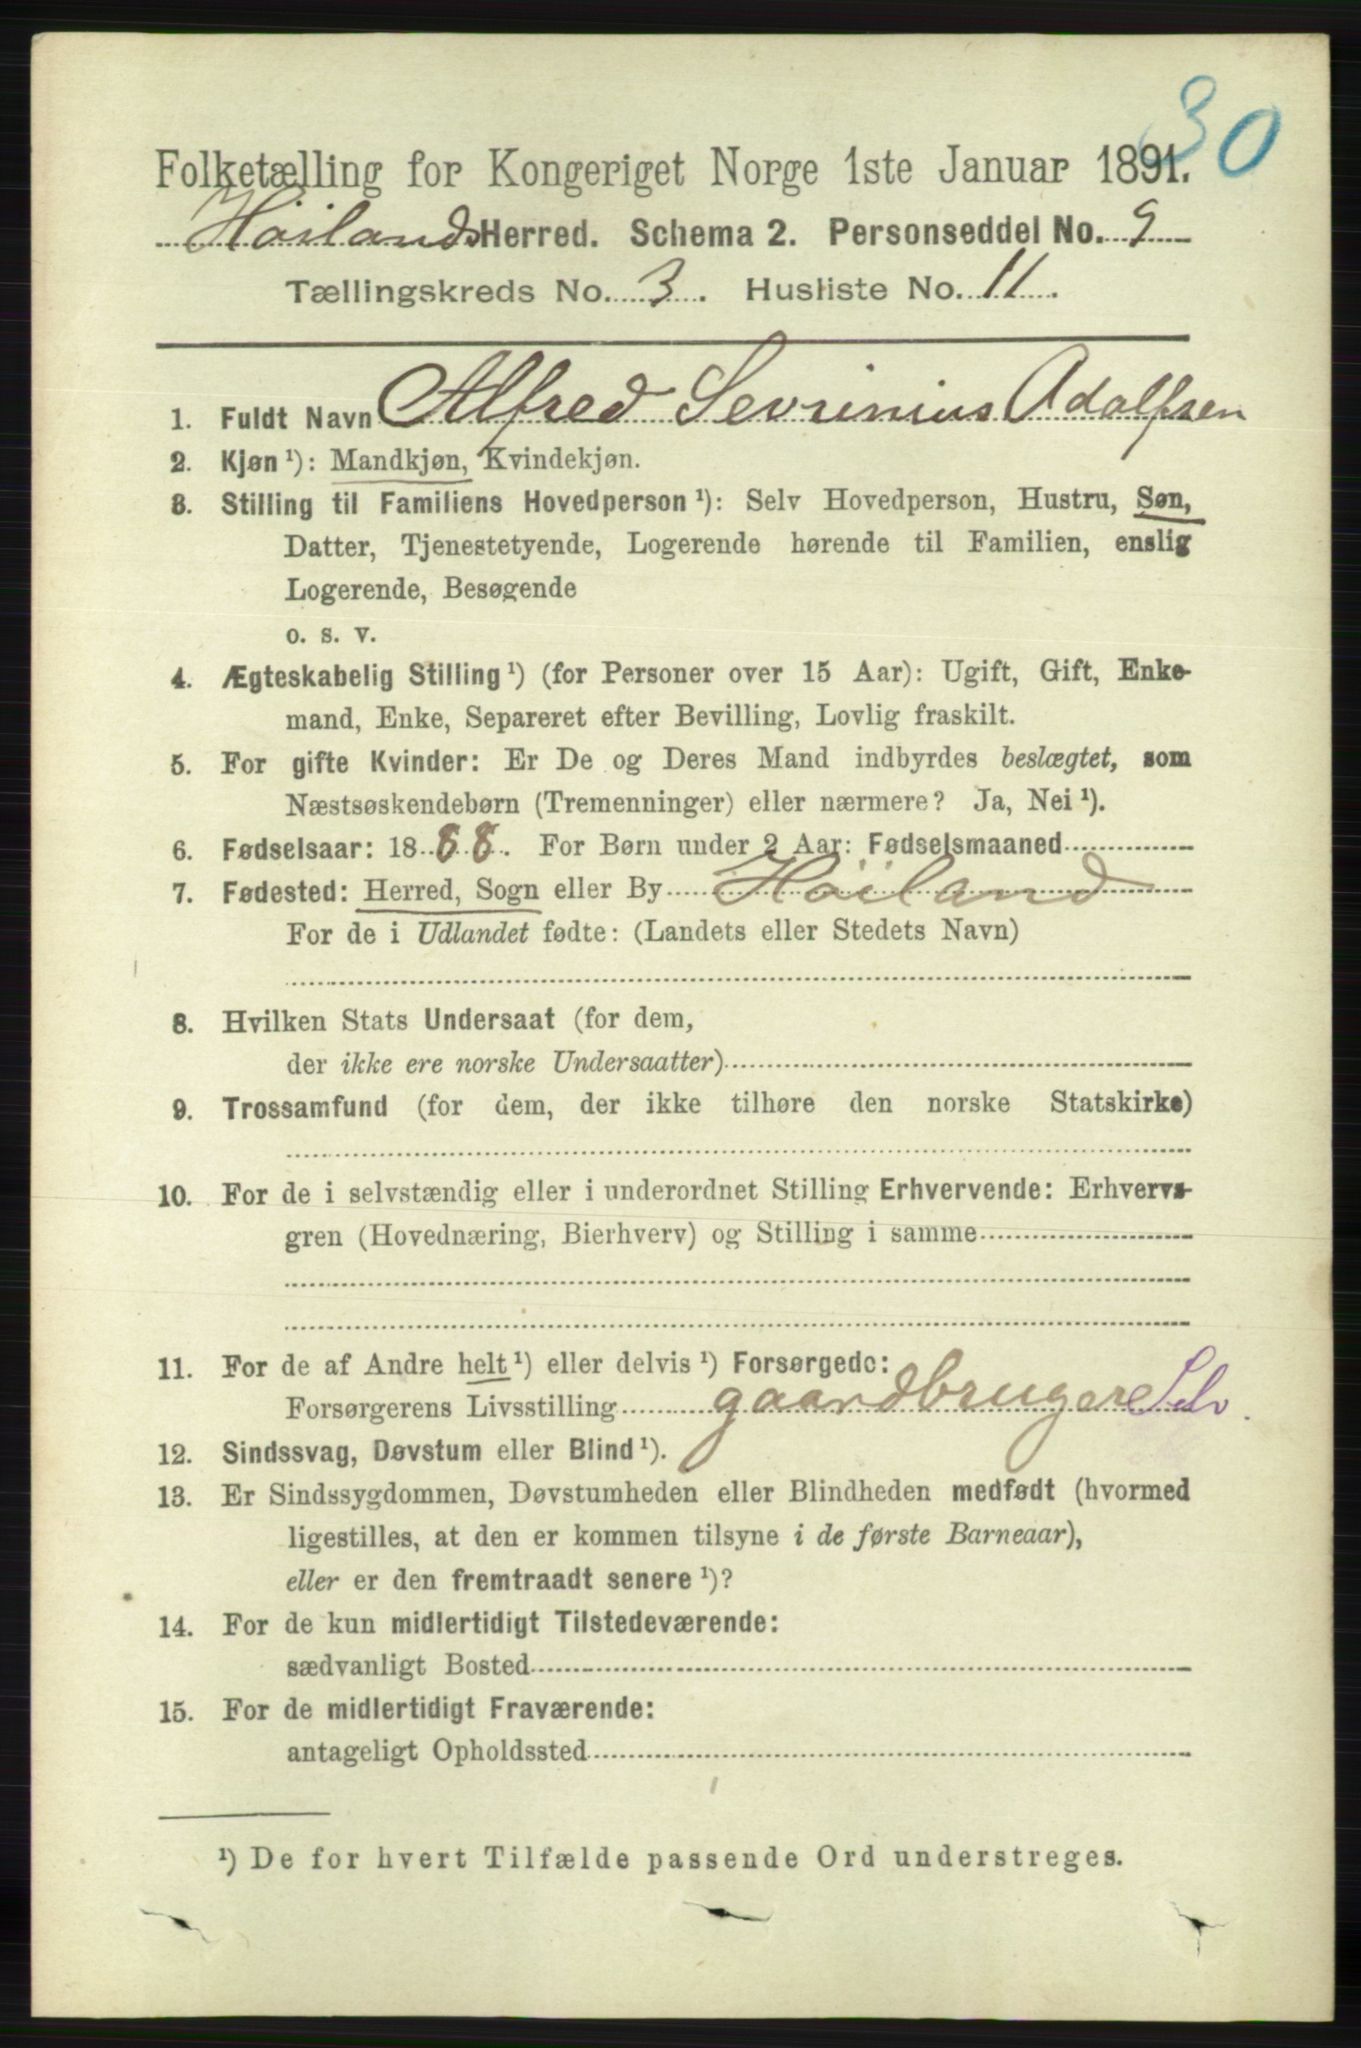 30
Folketælling for Kongeriget Norge 1ste Januar 1891.
Höilands Herred. Schema 2. Personseddel No. 9
Tællingskreds No. 3. Husliste No. 11.
1. Fuldt Navn Alfred Sevrinius Adolfsen
2. Kjøn ¹): Mandkjøn, Kvindekjøn.
3. Stilling til Familiens Hovedperson ¹): Selv Hovedperson, Hustru, Søn,
Datter, Tjenestetyende, Logerende hørende til Familien, enslig
Logerende, Besøgende
o. s. v.
4. Ægteskabelig Stilling ¹) (for Personer over 15 Aar): Ugift, Gift, Enke-
mand, Enke, Separeret efter Bevilling, Lovlig fraskilt.
5. For gifte Kvinder: Er De og Deres Mand indbyrdes beslægtet, som
Næstsøskendebørn (Tremenninger) eller nærmere? Ja, Nei ¹).
6. Fødselsaar: 1888. For Børn under 2 Aar: Fødselsmaaned
7. Fødested: Herred, Sogn eller By Höiland
For de i Udlandet fødte: (Landets eller Stedets Navn)
8. Hvilken Stats Undersaat (for dem,
der ikke ere norske Undersaatter)
9. Trossamfund (for dem, der ikke tilhøre den norske Statskirke)
10. For de i selvstændig eller i underordnet Stilling Erhvervende: Erhvervs-
gren (Hovednæring, Bierhverv) og Stilling i samme
11. For de af Andre helt ¹) eller delvis ¹) Forsørgede:
Forsørgerens Livsstilling gaardbruger Selv.
12. Sindssvag, Døvstum eller Blind ¹).
13. Er Sindssygdommen, Døvstumheden eller Blindheden medfødt (hvormed
ligestilles, at den er kommen tilsyne i de første Barneaar),
eller er den fremtraadt senere ¹)?
14. For de kun midlertidigt Tilstedeværende:
sædvanligt Bosted
15. For de midlertidigt Fraværende:
antageligt Opholdssted
¹) De for hvert Tilfælde passende Ord understreges.